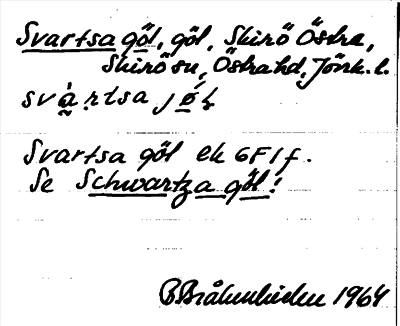 Svartsa göl, göl, Skirö Östra,
Skirö sn, Östra hd, Jönk. l.
svàrtsa jø̀ḷ
Svartsa göl ek 6F1f.
Se Schwartza göl!
1964